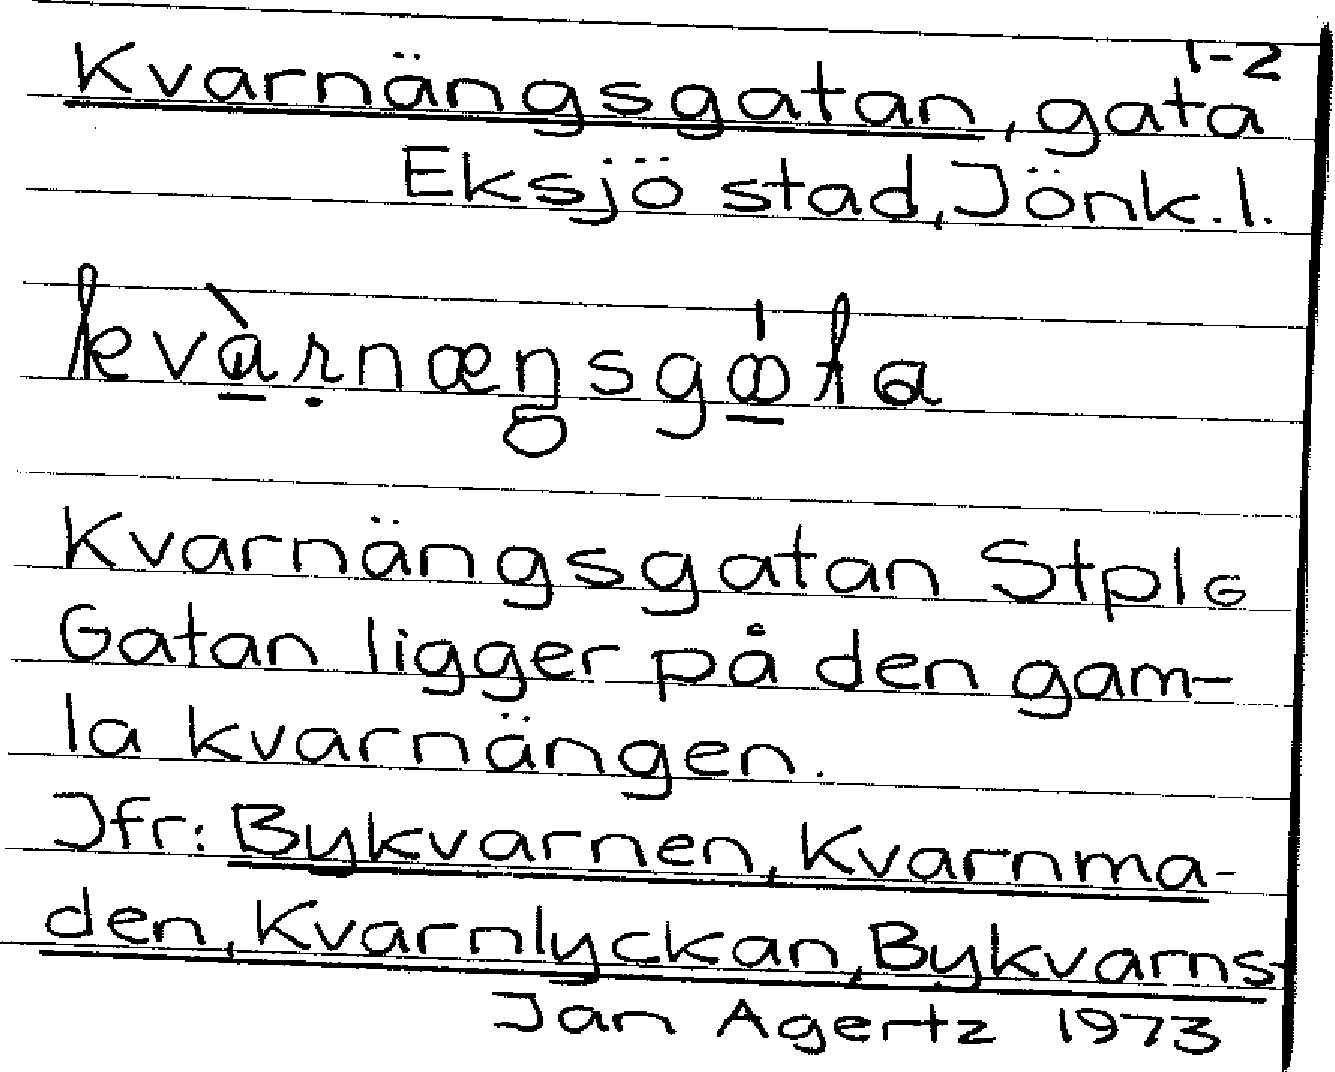 1-2
Kvarnängsgatan, gata
Eksjö stad, Jönk. l.
Kvarnängsgatan Stpl G
Gatan ligger på den gam-
la kvarnängen.
Jfr: Bykvarnen, Kvarnma-
den, Kvarnlyckan, Bykvarns-
Jan Agertz 1973